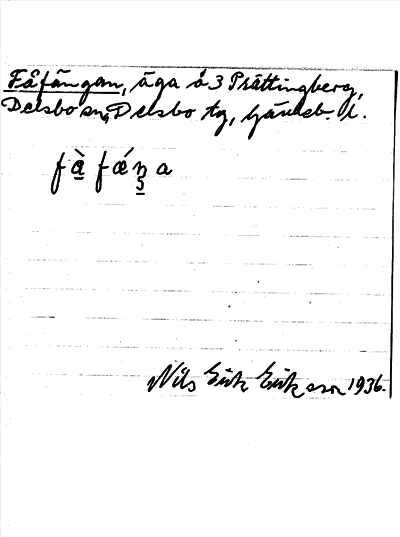 Fåfängan, äga å 3 Prästingberg,
Delsbo sn, Delsbo tg, Gävleb. l.
fà̱ fǽŋ̱a
Nils Erik Eriksson 1936.